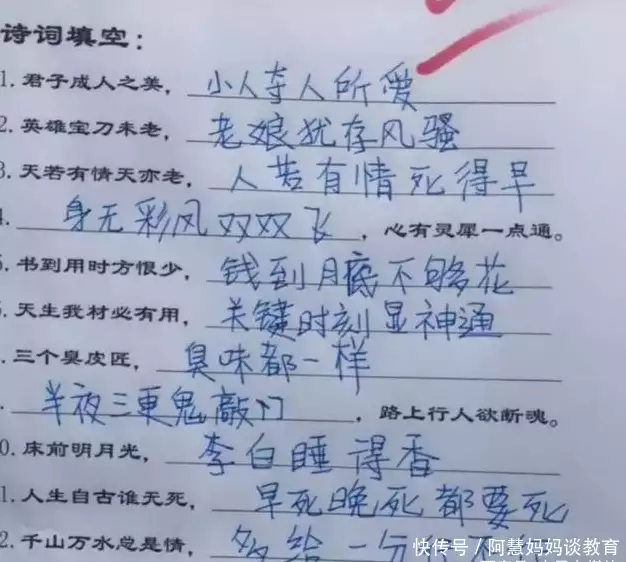 诗词填空：
1. 君子成人之美，小人夺人所爱
2. 英雄宝刀未老，老娘犹存风骚
3. 天若有情天亦老，人若有情死得早
4. 身无彩风双双飞，心有灵犀一点通。
5. 书到用时方恨少，钱到月底不够花
6. 天生我材必有用，关键时刻显神通
. 三个臭皮匠，臭味都一样
. 半夜三更鬼敲门，路上行人欲断魂。
0. 床前明月光，李白睡得香
1. 人生自古谁无死，早死晚死都要死
2. 千山万水总是情，多给一分
快传号 / 阿慧妈妈谈教育